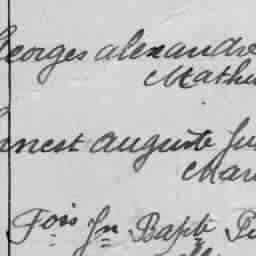 Georges alexandre
Mathu
Ernest auguste Ju
Mari
Fois Jn Bapte Pi